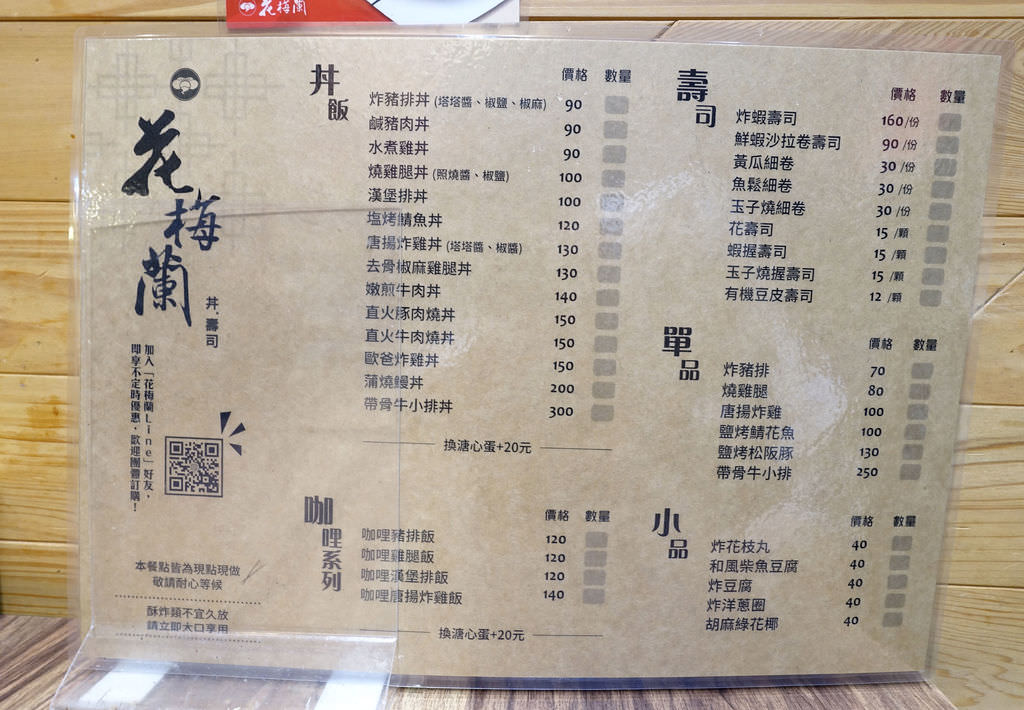 花梅蘭
花梅蘭
丼.壽司
加入「花梅蘭Line」好友，
即享不定時優惠，歡迎團體訂購！
本餐點皆為現點現做
敬請耐心等候
酥炸類不宜久放
請立即大口享用
丼飯 價格 數量
炸豬排丼 (塔塔醬、椒鹽、椒麻) 90
鹹豬肉丼 90
水煮雞丼 90
燒雞腿丼 (照燒醬、椒鹽) 100
漢堡排丼 100
塩烤鯖魚丼 120
唐揚炸雞丼 (塔塔醬、椒醬) 130
去骨椒麻雞腿丼 130
嫩煎牛肉丼 140
直火豚肉燒丼 150
直火牛肉燒丼 150
歐爸炸雞丼 150
蒲燒鰻丼 200
帶骨牛小排丼 300
換溏心蛋+20元
咖哩系列 價格 數量
咖哩豬排飯 120
咖哩雞腿飯 120
咖哩漢堡排飯 120
咖哩唐揚炸雞飯 140
換溏心蛋+20元
壽司 價格 數量
炸蝦壽司 160/份
鮮蝦沙拉卷壽司 90/份
黃瓜細卷 30/份
魚鬆細卷 30/份
玉子燒細卷 30/份
花壽司 15/顆
蝦握壽司 15/顆
玉子燒握壽司 15/顆
有機豆皮壽司 12/顆
單品 價格 數量
炸豬排 70
燒雞腿 80
唐揚炸雞 100
鹽烤鯖花魚 100
鹽烤松阪豚 130
帶骨牛小排 250
小品 價格 數量
炸花枝丸 40
和風柴魚豆腐 40
炸豆腐 40
炸洋蔥圈 40
胡麻綠花椰 40